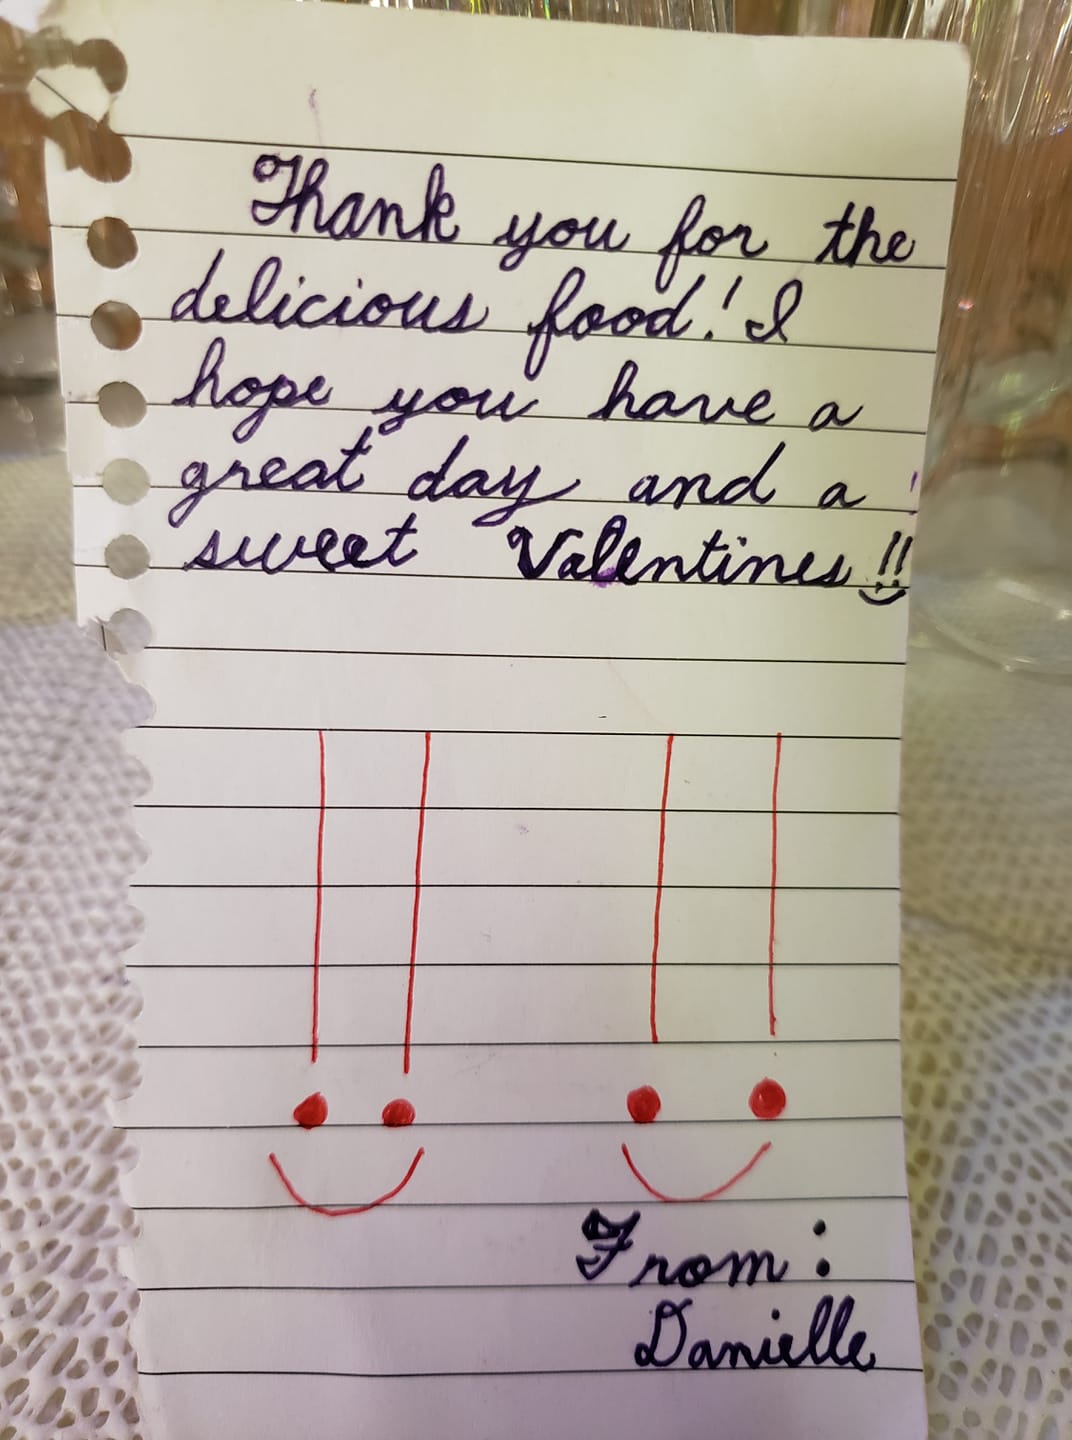 Thank you for the
delicious food! I
hope you have a
great day and a !
sweet Valentines!!
From:
Danielle